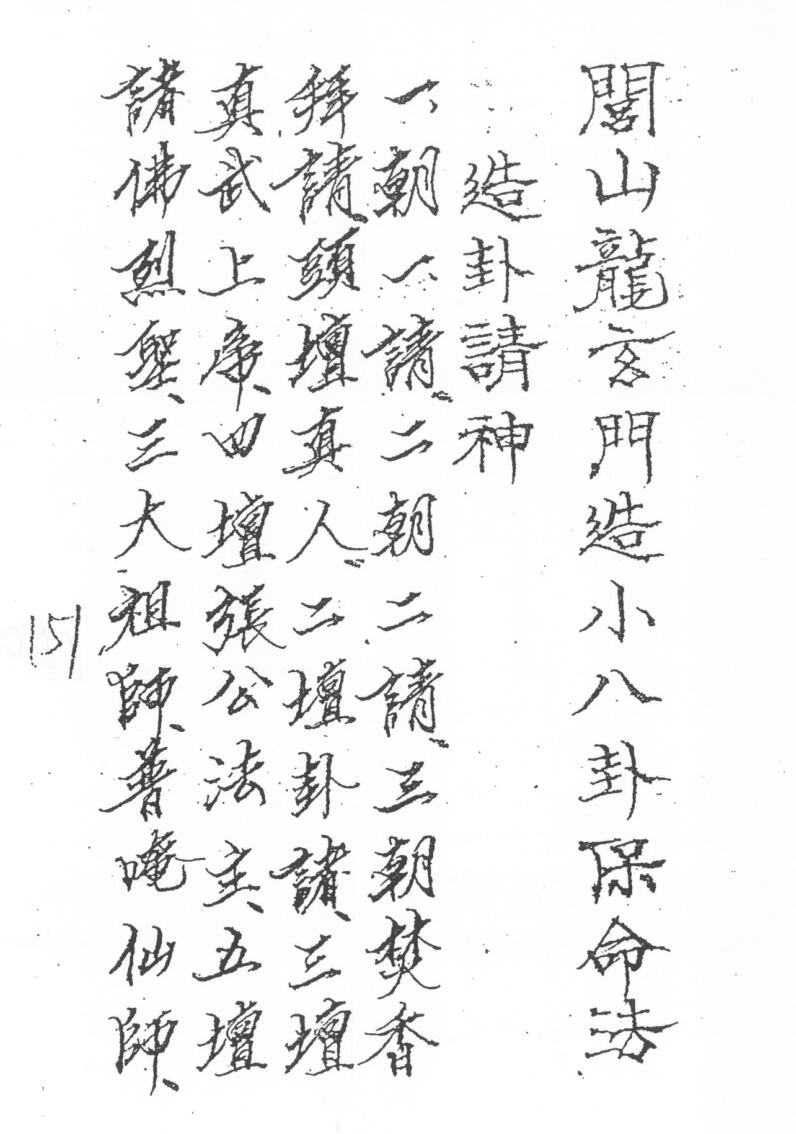 閭山龍玄門造小八卦保命法
造卦請神
一朝一請、二朝二請、三朝焚香
拜請頭壇真人、二壇卦諸、三壇
真武上帝、四壇張公法主、五壇
諸佛烈聖、三大祖師、普唵仙師、
151